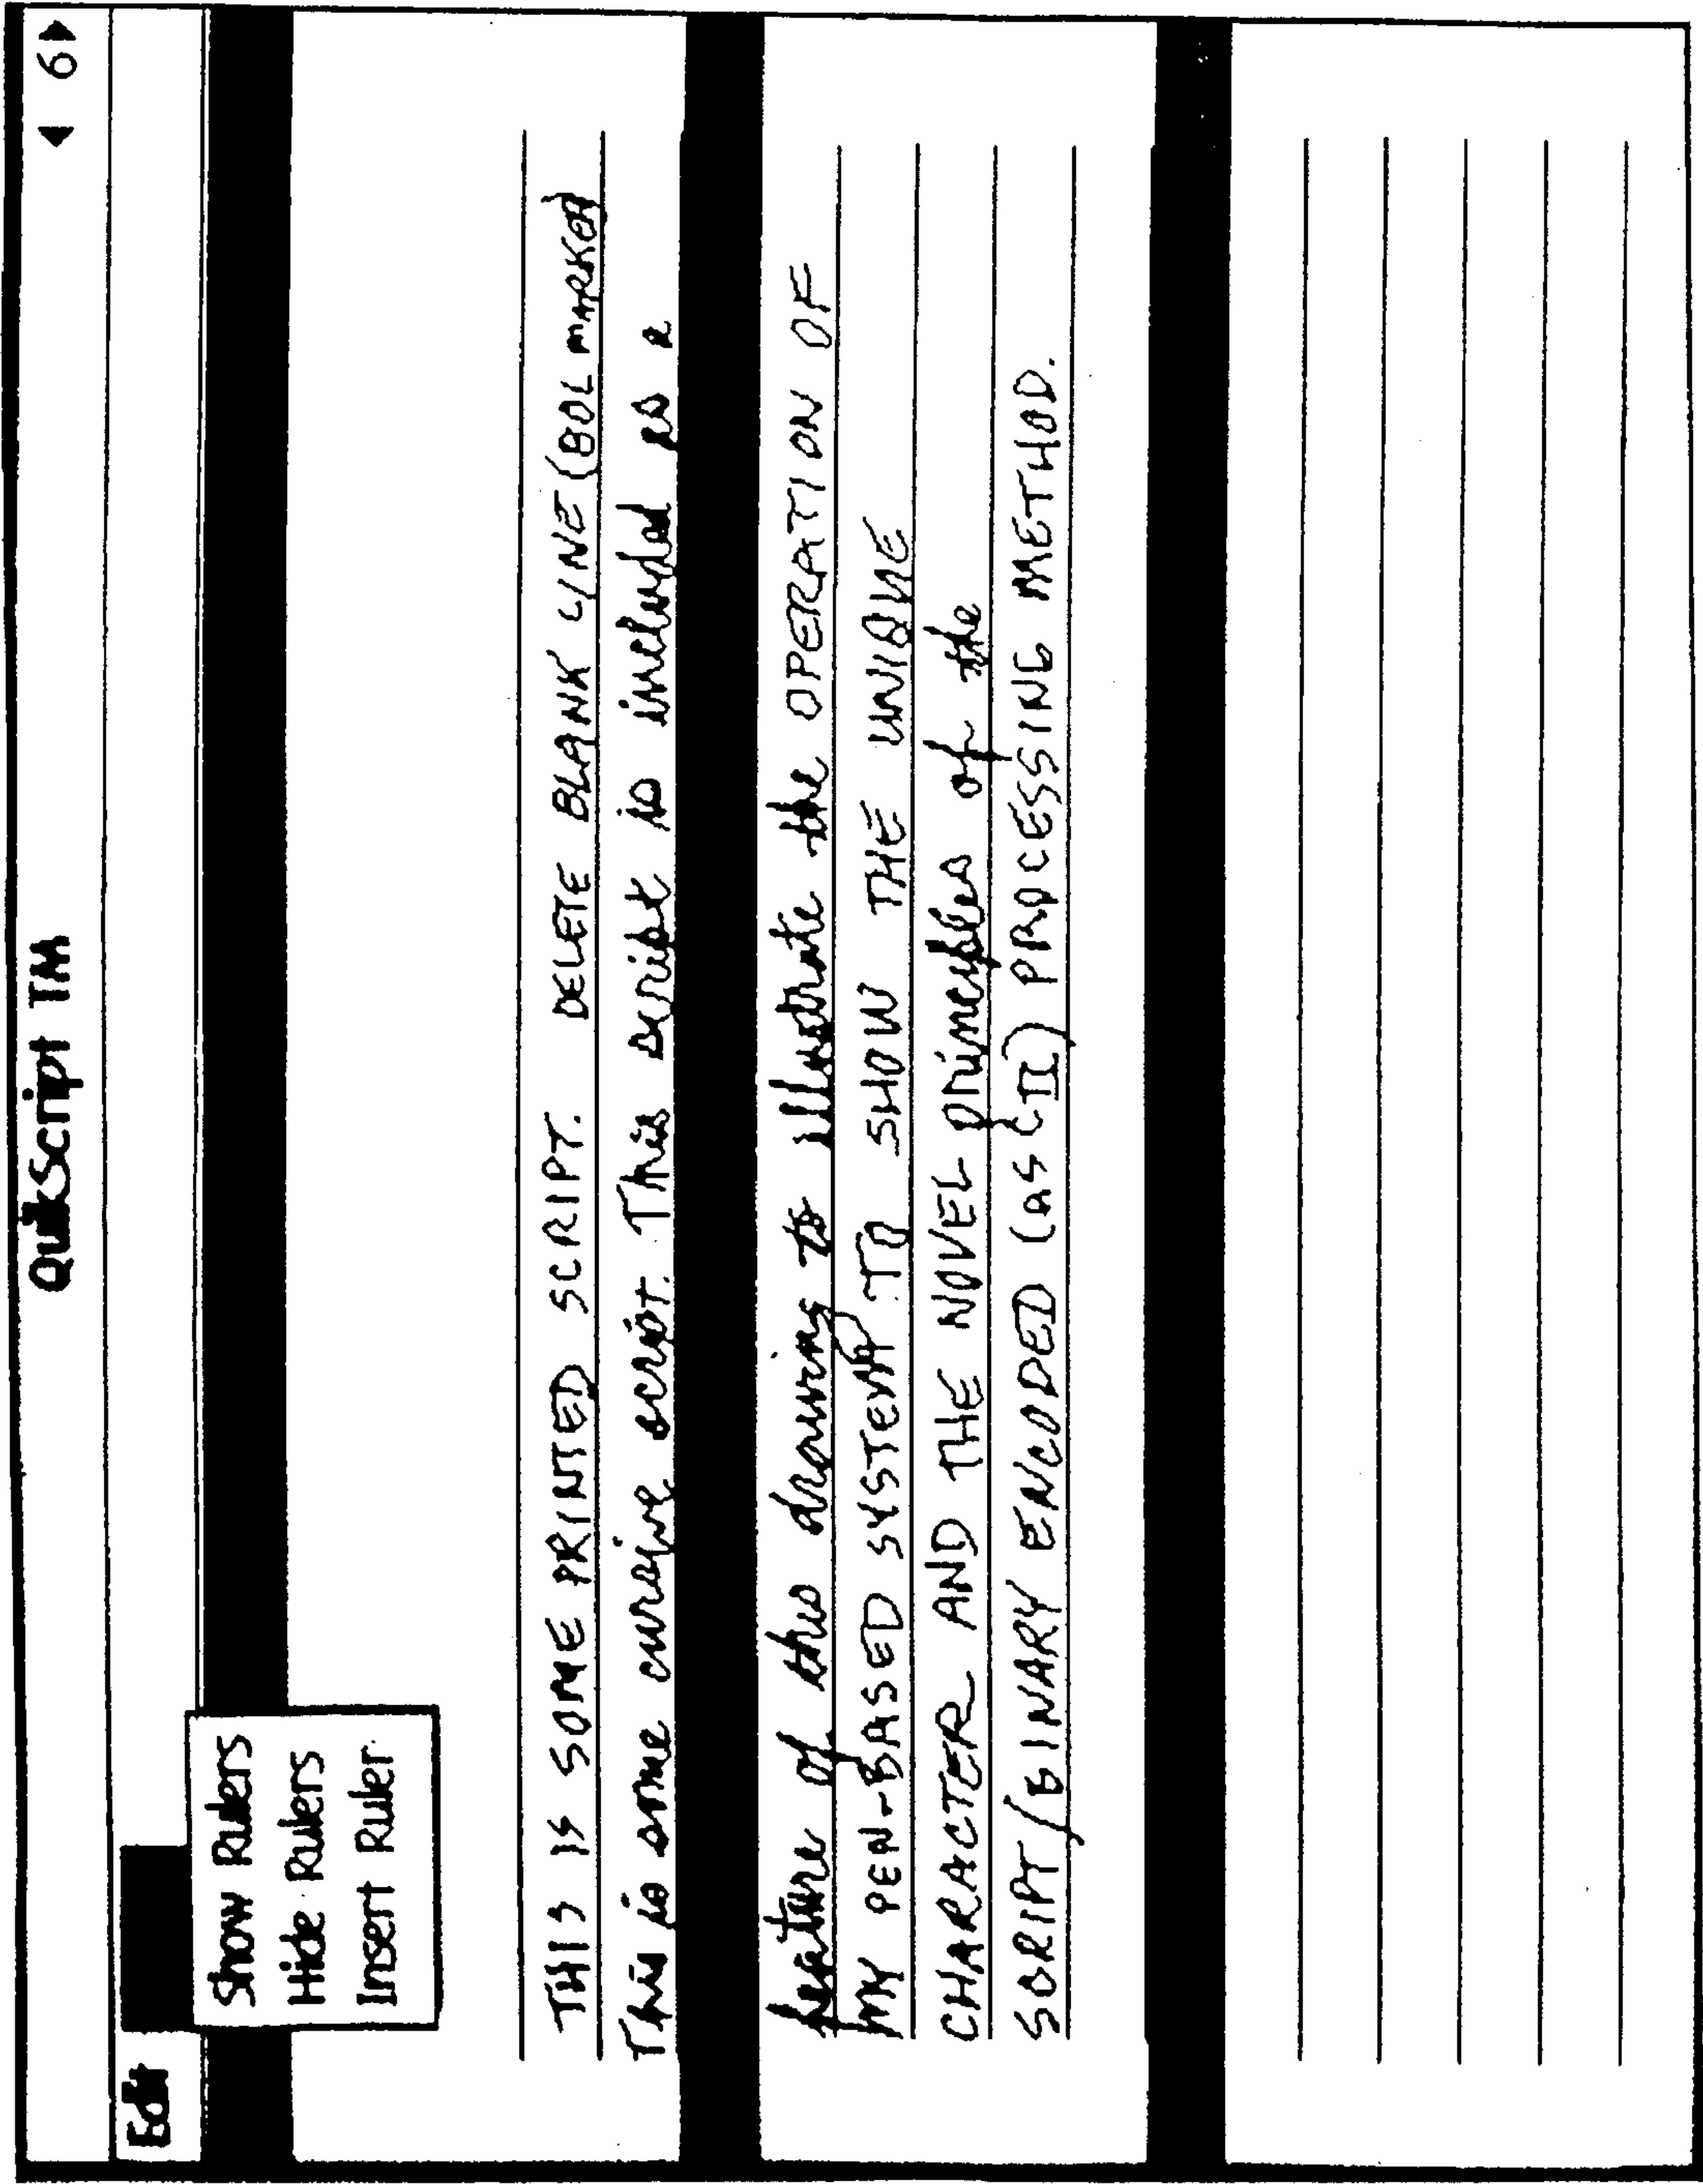 QuikScript TM
6
Edit
Show Rulers
Hide Rulers
Insert Ruler
THIS IS SOME PRINTED SCRIPT. DELETE BLANK LINE (BOL MARKER)
This is some cursive script. This script is included as a
feature of this drawing to illustrate the OPERATION OF
MY PEN-BASED SYSTEM TO SHOW THE UNIQUE
CHARACTER AND THE NOVEL principles of the
SCRIPT/BINARY ENCODED (ASCII) PROCESSING METHOD.